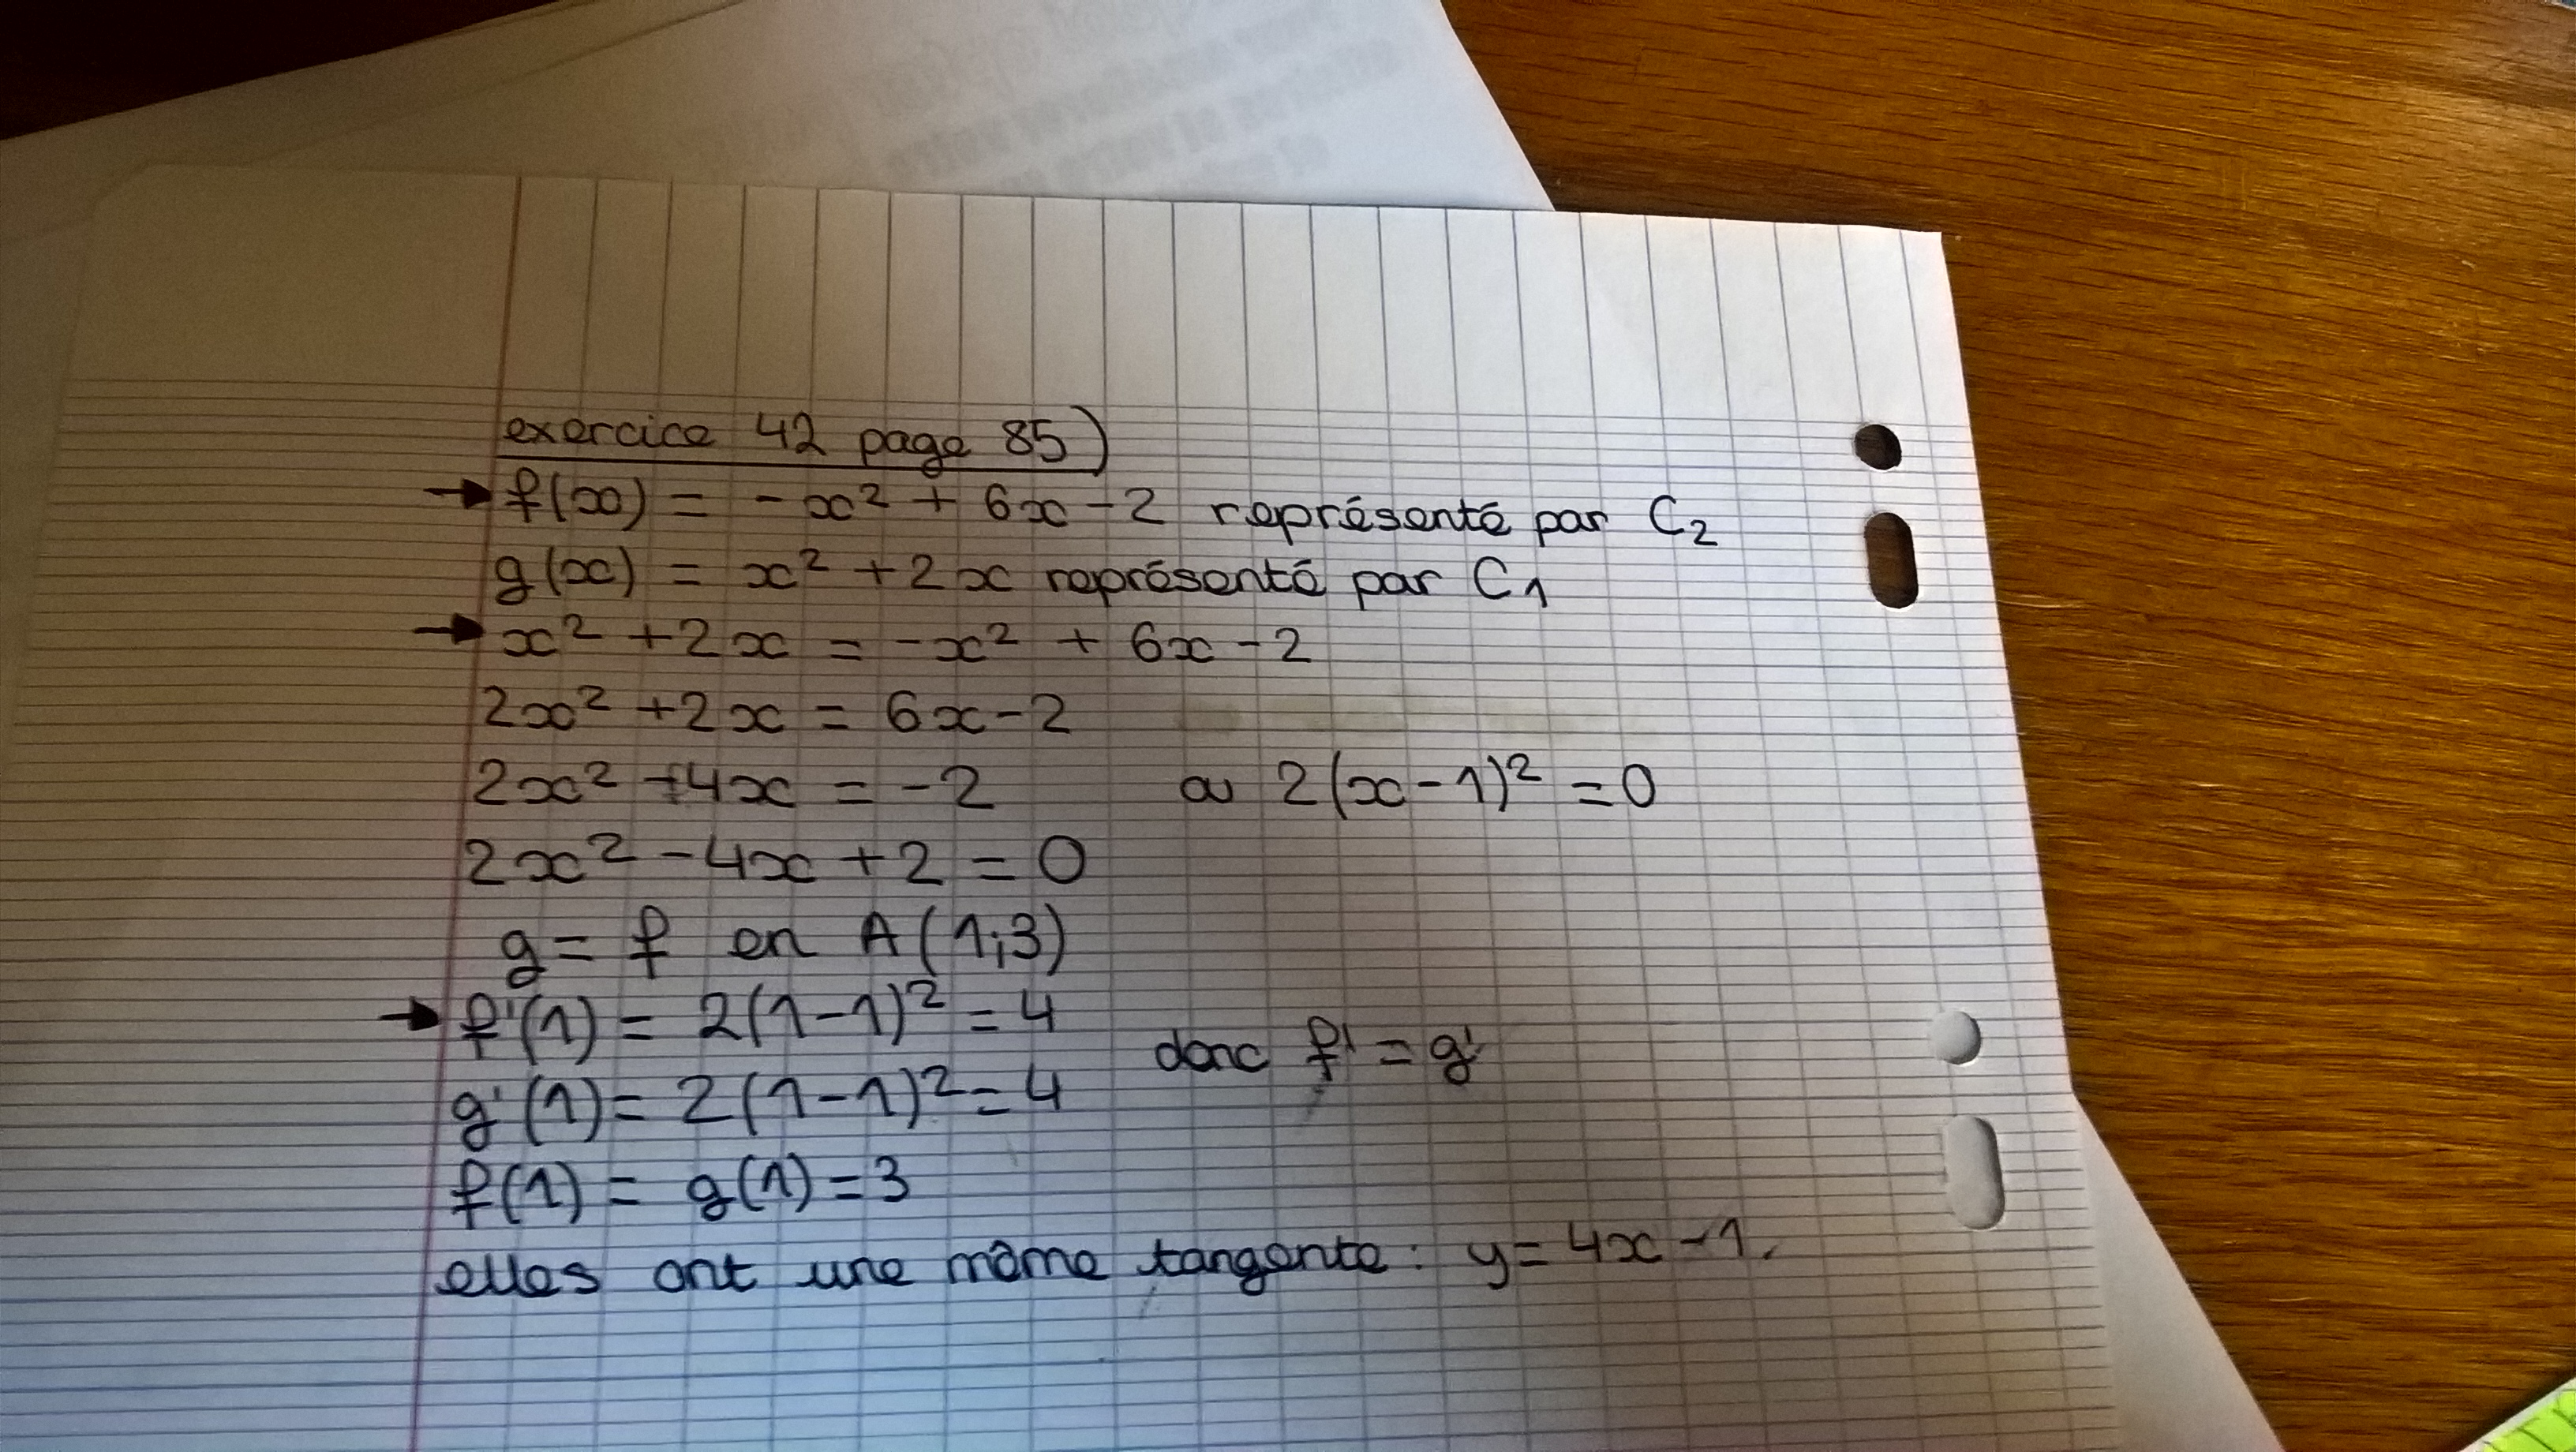 exercice 42 page 85)
→ f(x) = -x² + 6x - 2 représenté par C₂
g(x) = x² + 2x représenté par C₁
→ x² + 2x = -x² + 6x - 2
2x² + 2x = 6x - 2
2x² - 4x = -2 ou 2(x-1)² = 0
2x² - 4x + 2 = 0
g = f en A(1;3)
→ f'(1) = 2(1-1)² = 4
donc f' = g'
g'(1) = 2(1-1)² = 4
f(1) = g(1) = 3
elles ont une même tangente : y = 4x - 1.